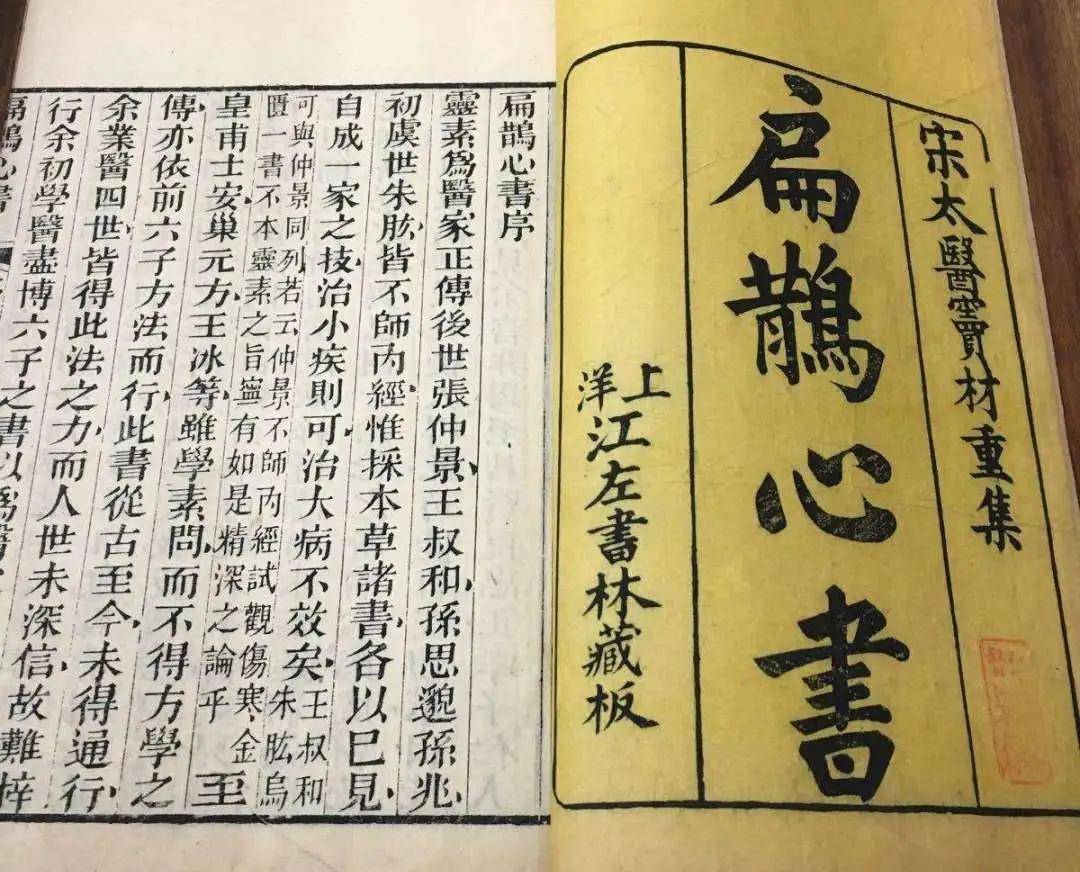 宋太醫竇材重集
扁鵲心書
上洋
江左書林藏板
扁鵲心書序
靈素爲醫家正傳後世張仲景王叔和孫思邈孫兆
初虞世朱肱皆不師內經惟採本草諸書各以已見
自成一家之技治小疾則可治大病不效矣王叔和朱肱烏
可與仲景同列若云仲景不師內經試觀傷寒金
匱一書不本靈素之旨寧有如是精深之論乎至
皇甫士安巢元方王冰等雖學素問而不得方學之
傳亦依前六子方法而行此書從古至今未得通行
余業醫四世皆得此法之力而人世未深信故難梓
行余初學醫盡博六子之書以爲醫
扁鵲心書